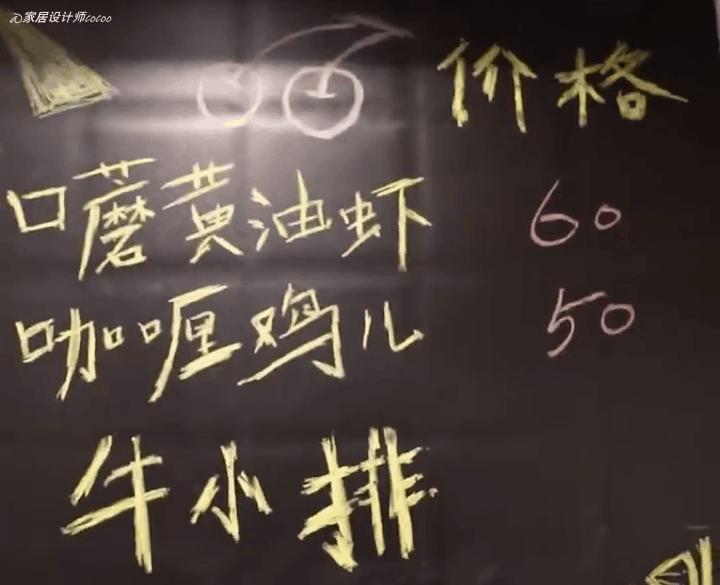 @家居设计师cocoo
价格
口蘑黄油虾 60
咖喱鸡儿 50
牛小排